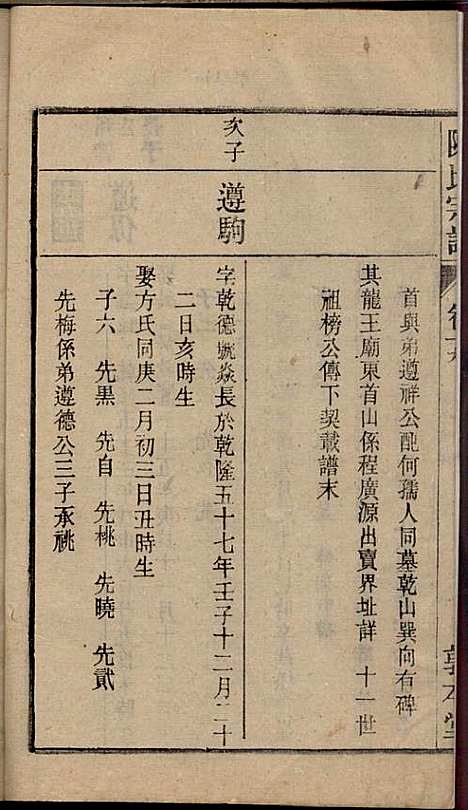 陳氏宗譜
卷十六
敦本堂
首與弟遵祥公配何孺人同墓乾山巽向有碑
其龍王廟東首山係程廣源出賣界址詳十一世
祖榜公傳下契載譜末
次子
遵駒
字乾德號焱長於乾隆五十七年壬子十二月二十
二日亥時生
娶方氏同庚二月初三日丑時生
子六 先黑 先自 先桃 先曉 先貳
先梅係弟遵德公三子承祧